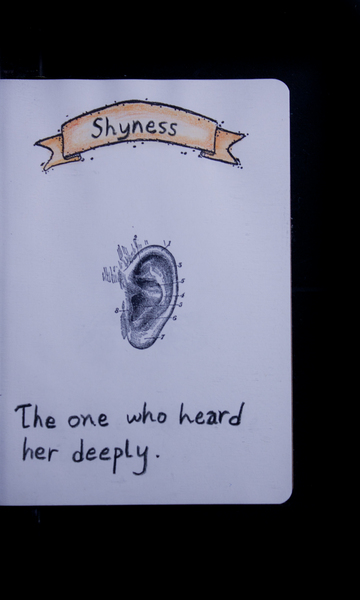 Shyness
The one who heard
her deeply.